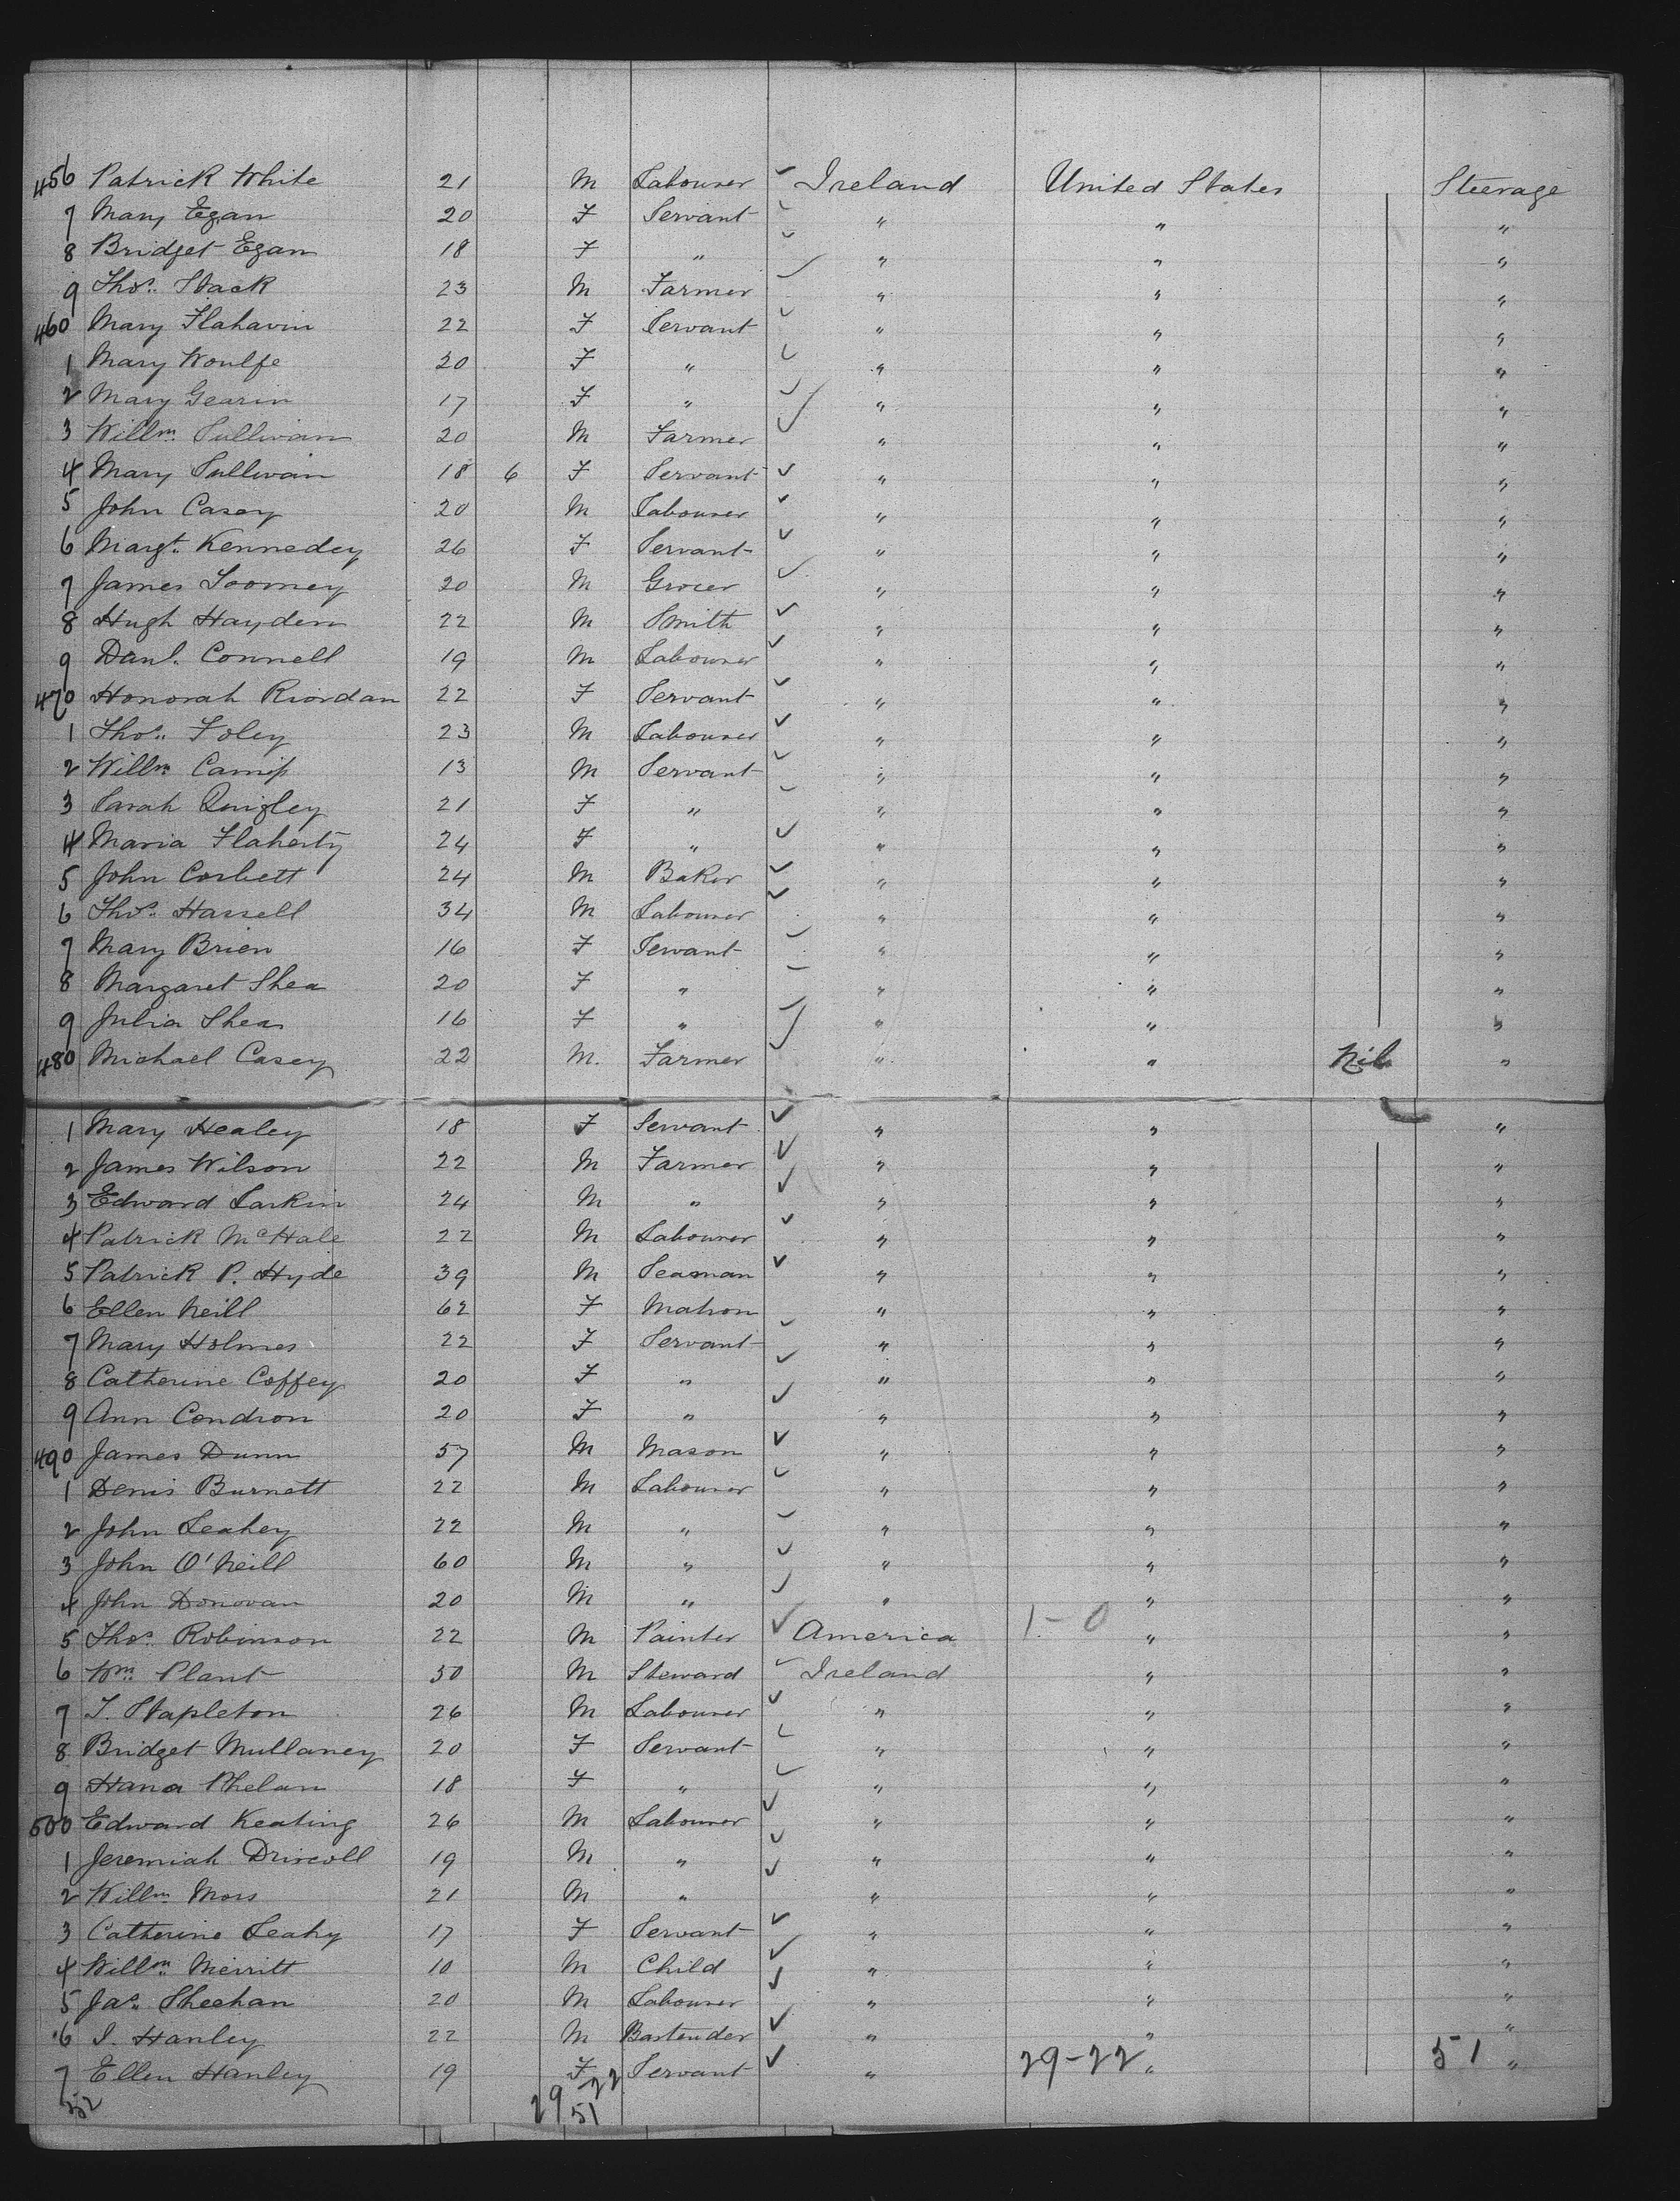 456 Patrick White 21 M Labourer ✓ Ireland United States Steerage
7 Mary Egan 20 F Servant ✓ " " "
8 Bridget Egan 18 F " ✓ " " "
9 Thos. Stack 23 M Farmer ✓ " " "
460 Mary Flahavin 22 F Servant ✓ " " "
1 Mary Woulfe 20 F " ✓ " " "
2 Mary Gearin 17 F " ✓ " " "
3 Willm. Sullivan 20 M Farmer ✓ " " "
4 Mary Sullivan 18 6 F Servant ✓ " " "
5 John Casey 20 M Labourer ✓ " " "
6 Margt. Kennedey 26 F Servant ✓ " " "
7 James Toomey 20 M Grocer ✓ " " "
8 Hugh Hayden 22 M Smith ✓ " " "
9 Danl. Connell 19 M Labourer ✓ " " "
470 Honorah Riordan 22 F Servant ✓ " " "
1 Thos. Foley 23 M Labourer ✓ " " "
2 Willm 13 M Servant ✓ " " "
3 Sarah Quigley 21 F " ✓ " " "
4 Maria Flaherty 24 F " ✓ " " "
5 John Corbett 24 M Baker ✓ " " "
6 Thos. Hassell 34 M Labourer ✓ " " "
7 Mary Brien 16 F Servant ✓ " " "
8 Margaret Shea 20 F " ✓ " " "
9 Julia Shea 16 F " ✓ " " "
480 Michael Casey 22 M. Farmer ✓ " " Nil "
1 Mary Healey 18 F Servant ✓ " " "
2 James Wilson 22 M Farmer ✓ " " "
3 Edward Larkin 24 M " ✓ " " "
4 Patrick McHale 22 M Labourer ✓ " " "
5 Patrick P. Hyde 39 M Seaman ✓ " " "
6 Ellen Neill 62 F Matron " " "
7 Mary Holmes 22 F Servant ✓ " " "
8 Catherine Coffey 20 F " ✓ " " "
9 Ann Condron 20 F " ✓ " " "
490 James Dunn 57 M Mason ✓ " " "
1 Denis Burnett 22 M Labourer ✓ " " "
2 John Leahey 22 M " ✓ " " "
3 John O'Neill 60 M " ✓ " " "
4 John Donovan 20 M " ✓ " " "
5 Thos. Robinson 22 M Painter ✓ America 1-0 " "
6 Wm. Plant 30 M Steward ✓ Ireland " "
7 T. Stapleton 26 M Labourer ✓ " " "
8 Bridget Mullaney 20 F Servant ✓ " " "
9 Hana Phelan 18 F " ✓ " " "
500 Edward Keating 26 M Labourer ✓ " " "
1 Jeremiah Driscoll 19 M " ✓ " " "
2 Willm Moss 21 M " ✓ " " "
3 Catherine Leahy 17 F Servant ✓ " " "
4 Willm. Merritt 10 M Child ✓ " " "
5 Jas. Sheehan 20 M Labourer ✓ " " "
6 J. Hanley 22 M Bartender ✓ " " "
7 Ellen Hanley 19 F Servant ✓ " 29-22 " 51 "
52 29-22
51